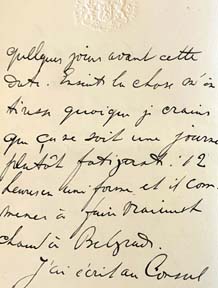 quelques jours avant cette
date. Ensuite la chose m'in
téresse quoique je crains
que ça ne soit une journée
plutôt fatigante. 12
heures en uniforme et il com
mence à faire vraiment
chaud à Belgrade.
J'ai écrit au Consul